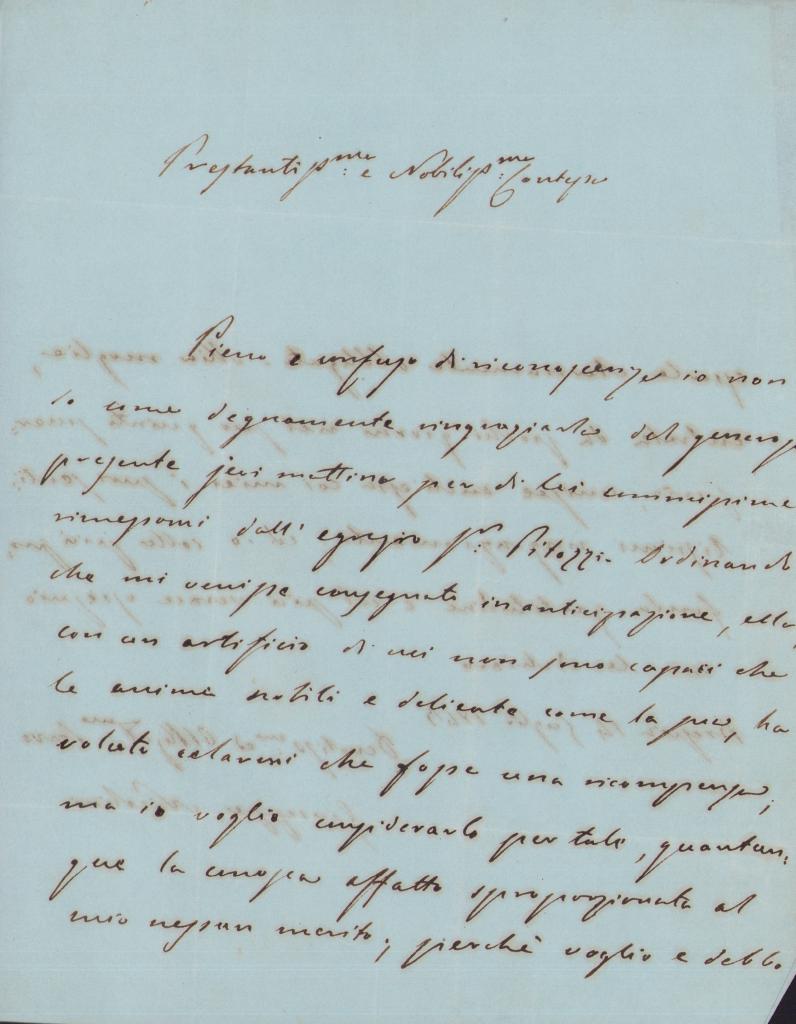 Prestantissma: e Nobilissma: Contessa
Pieno e confuso di riconoscenza io non
so come degnamente ringraziarla del generoso
presente jeri mattina per di Lei commissione
rimessomi dall' egregio Sr: Pitozzi. Ordinando
che mi venisse consegnato in anticipazione, ella
con un artificio di cui non sono capaci che
le anime nobili e delicate come la sua, ha
voluto celarmi che fosse una ricompensa;
ma io voglio considerarlo per tale, quantun:
que la conosca affatto sproporzionata al
mio nessun merito; perchè voglio e debbo